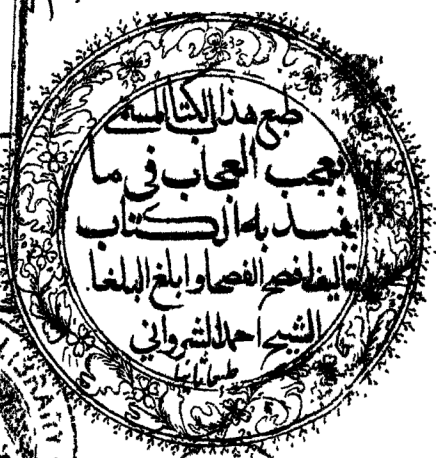 طبع هذا الكتاب المسمى
بعجب العجاب فى ما
يفيد به الكتاب
تاليف افصح الفصحا و ابلغ البلغا
الشيخ احمد الشرواني
طبعا ثانيا
LIBRARY